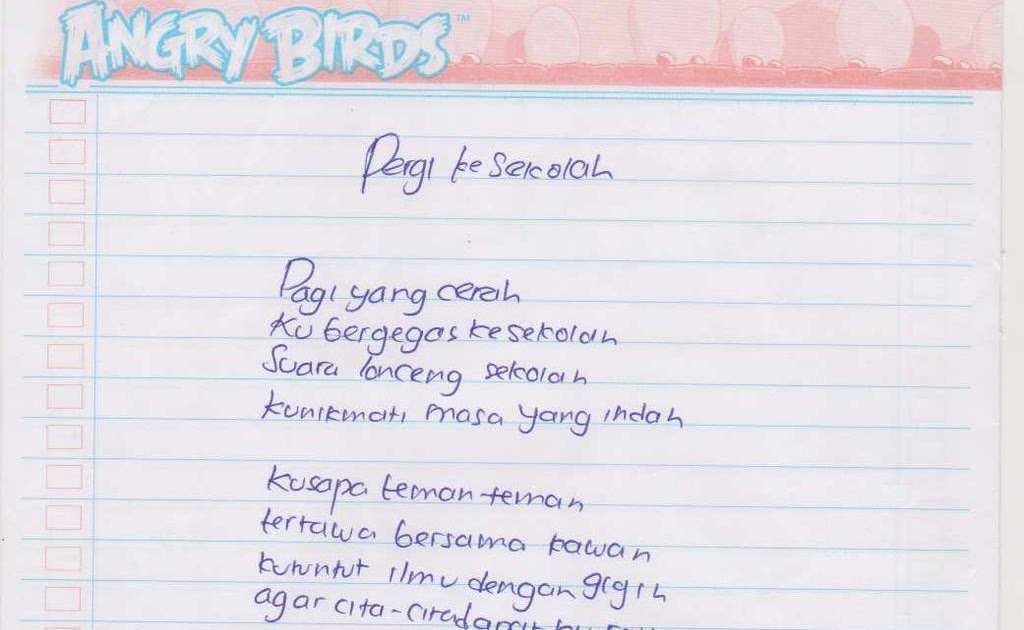 ANGRY BIRDS™
Pergi ke sekolah
Pagi yang cerah
Ku bergegas ke sekolah
Suara lonceng sekolah
kunikmati masa yang indah
kusapa teman-teman
tertawa bersama kawan
kutuntut ilmu dengan gigih
agar cita-cita